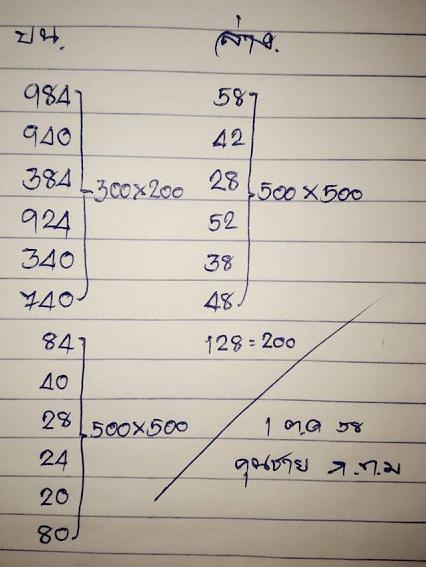 บน.
984
940
384
924
340
740
300×200
84
40
28
24
20
80
500×500
ล่าง.
58
42
28
52
38
48
500×500
128=200
1 ต.ค 58
คุณชาย